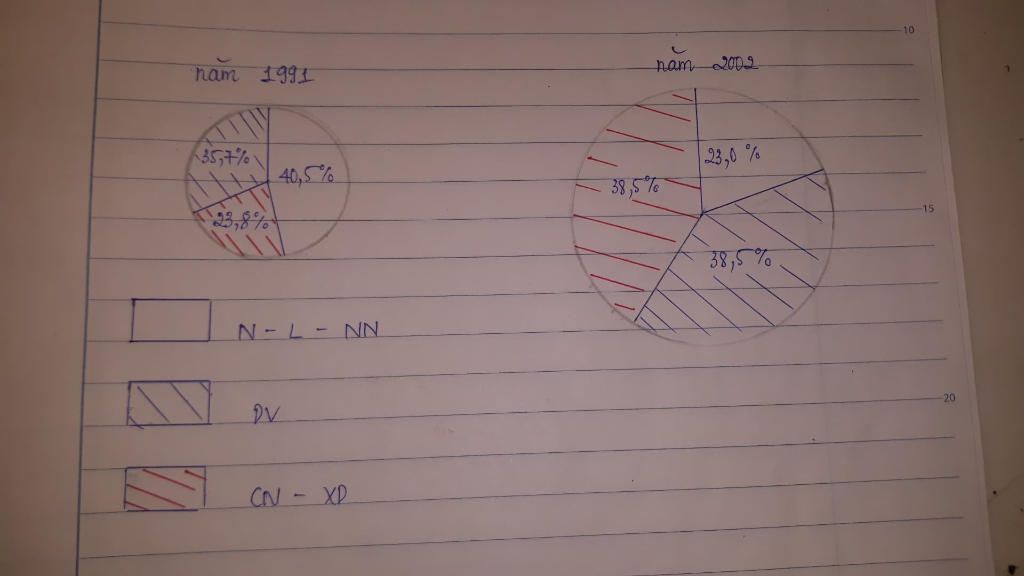 năm 1991
35,7%
40,5%
23,8%
năm 2002
23,0 %
38,5%
38,5%
N - L - NN
DV
CN - XD
10
15
20